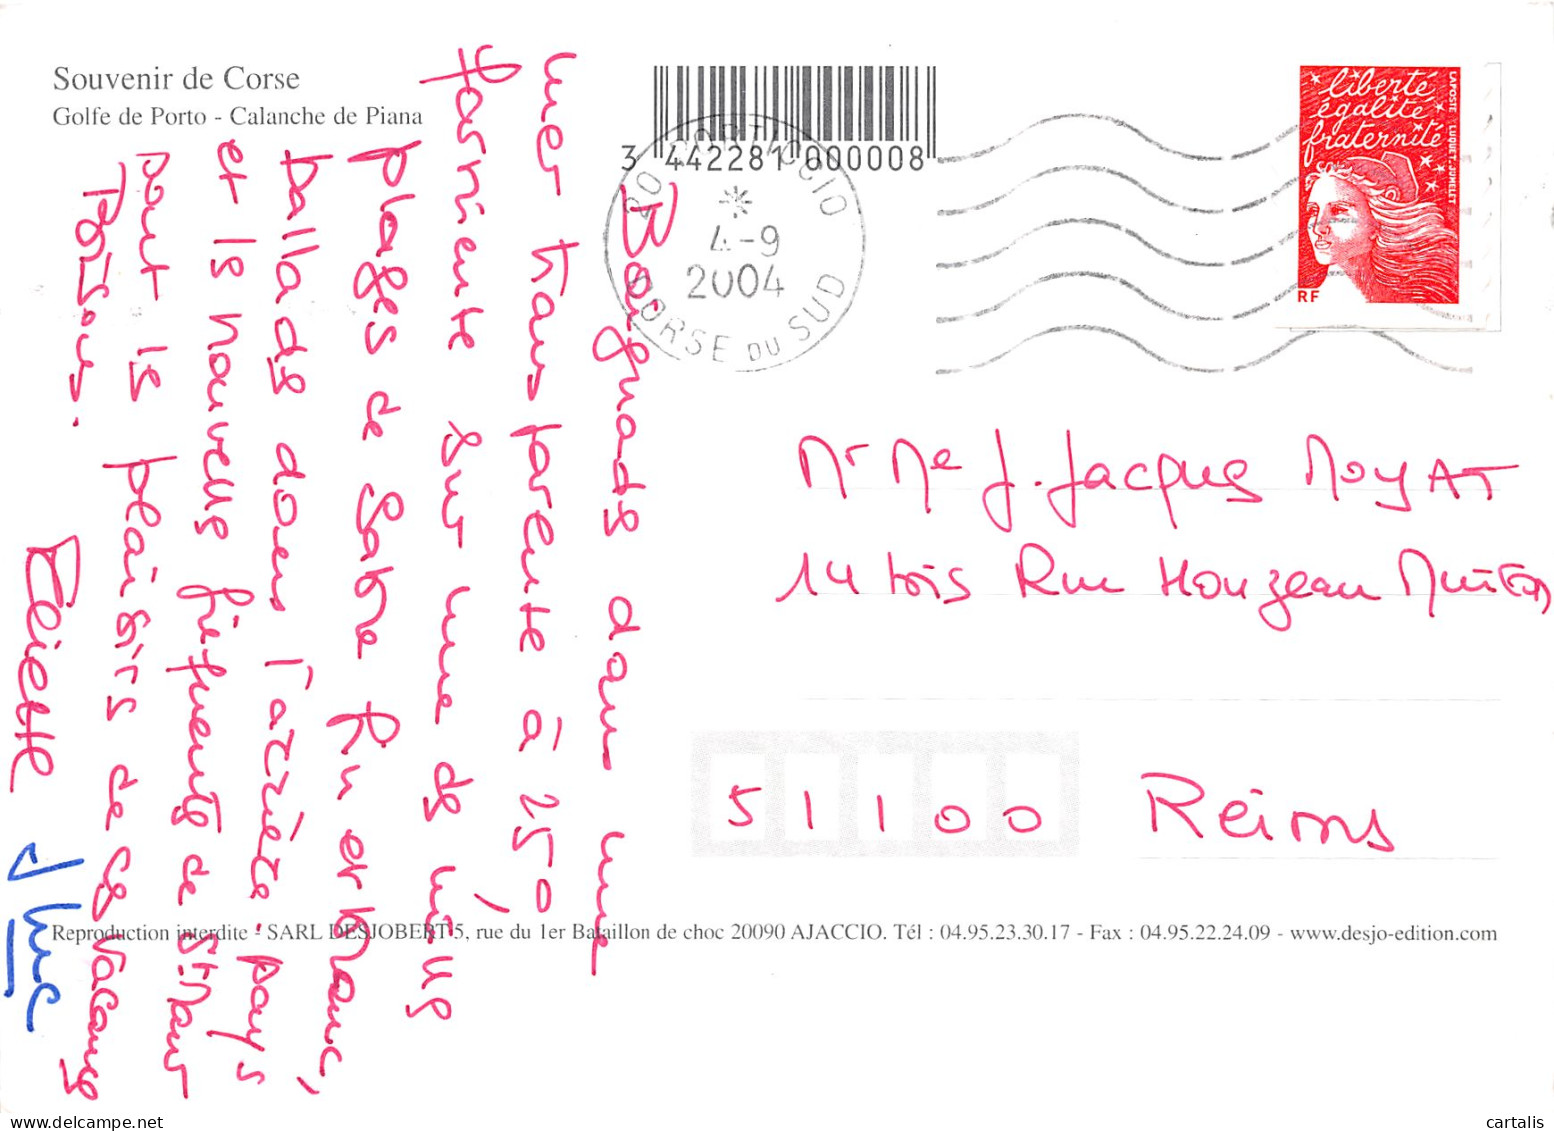 Souvenir de Corse
Golfe de Porto - Calanche de Piana
3 442281 000008
20 PORTICCIO
4-9
2004
CORSE DU SUD
liberté
égalité
fraternité
LA POSTE LUQUET-JUMELET
RF
Baignade dans une
mer transparente à 25°,
farniente sur une des mille
plages de sable fin et blanc,
ballade dans l'arrière-pays
et le nouveau
sont les plaisirs de ces vacances
Eliette
J Luc
Mr Me J. Jacques MOYAT
14 bis Rue Houzeau Muiron
51100 Reims
Reproduction interdite - SARL DESJOBERT 5, rue du 1er Bataillon de choc 20090 AJACCIO. Tél : 04.95.23.30.17 - Fax : 04.95.22.24.09 - www.desjo-edition.com
cartalis